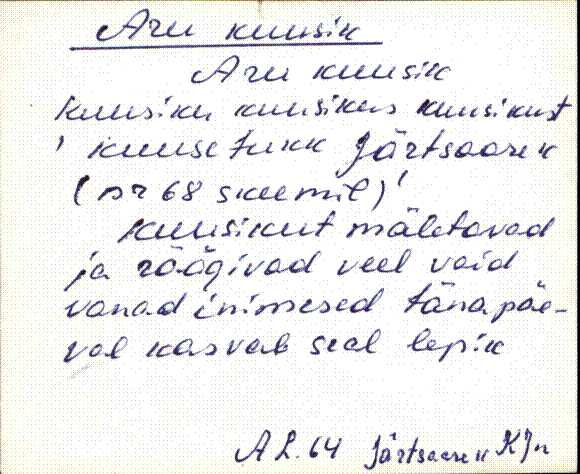 Aru kuusik
Aru kuusik
kuusiku kuusikus kuusikust
' kuusetukk Järtsaarek
(nr 68 skeemil)'
Kuusikut mäletavad
ja räägivad veel vaid
vanad inimesed tänapäe-
val kasvab seal lepik
A L. 64 Järtsaarek KJn